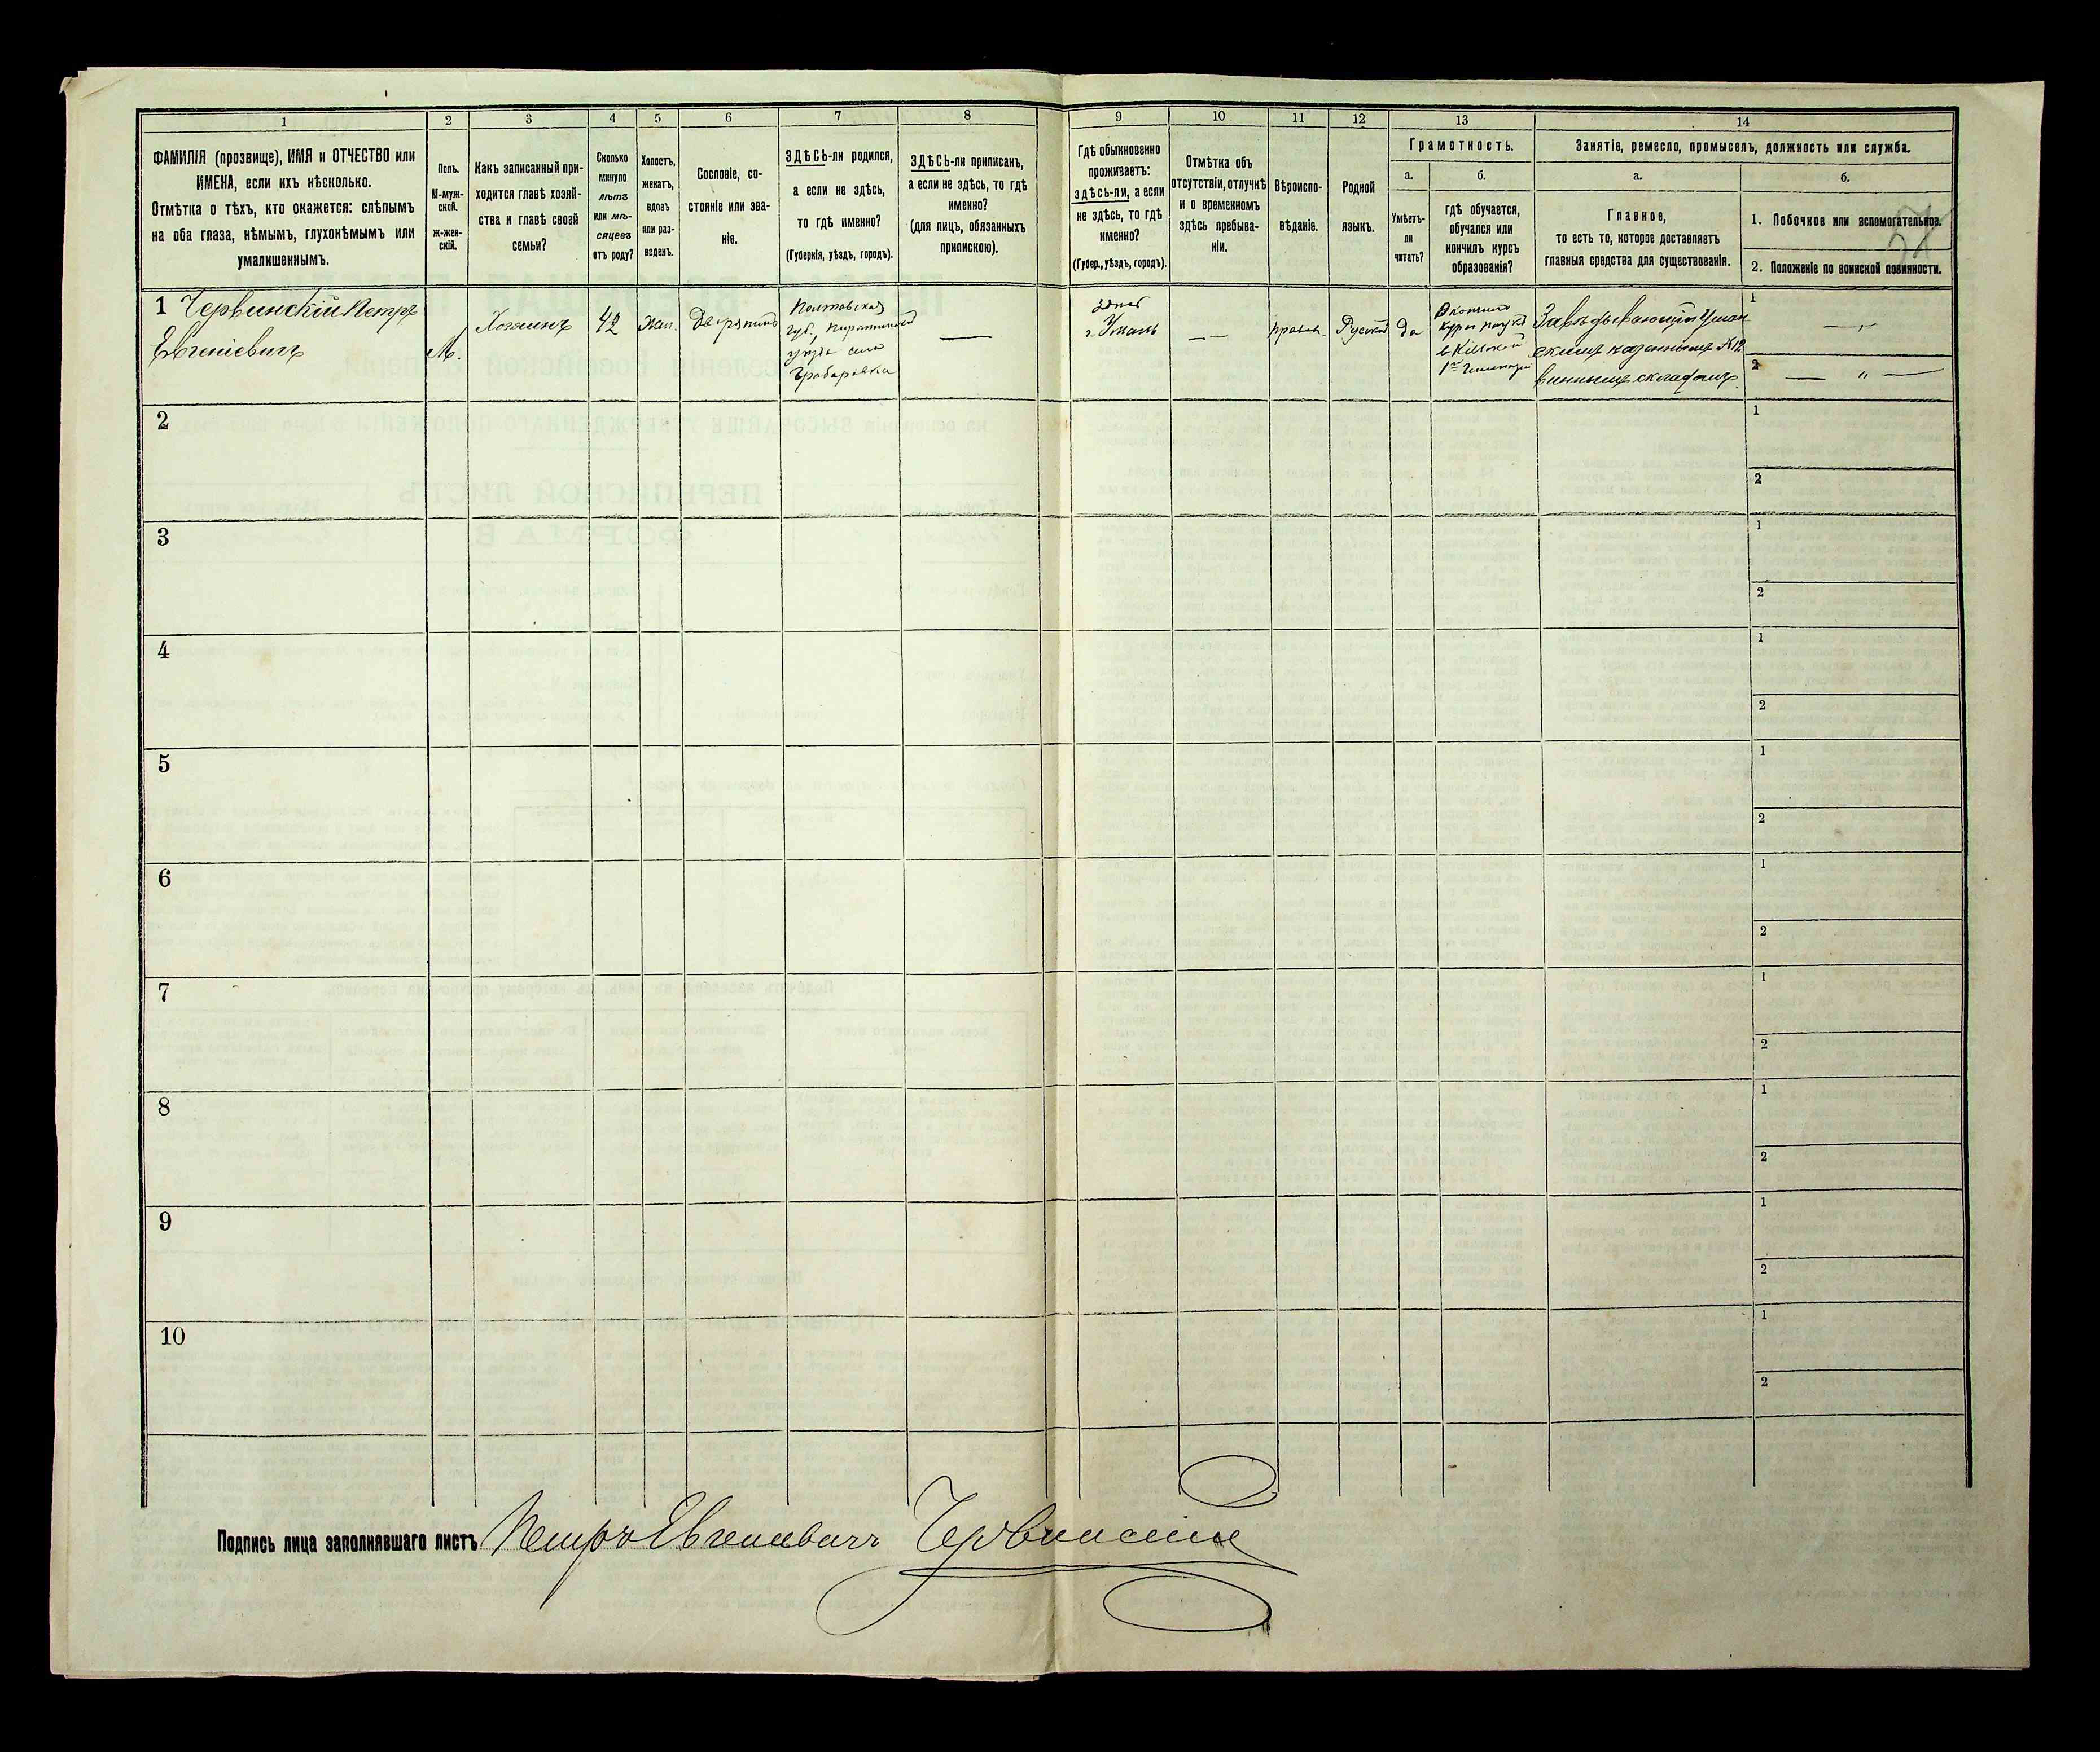 1
2
3
4
5
6
7
8
9
10
11
12
13
14
ФАМИЛІЯ (прозвище), ИМЯ и ОТЧЕСТВО или
ИМЕНА, если ихъ нѣсколько.
Отмѣтка о тѣхъ, кто окажется: слѣпымъ
на оба глаза, нѣмымъ, глухонѣмымъ или
умалишеннымъ.
Полъ.
М-муж-
ской.
Ж-жен-
скій.
Какъ записанный при-
ходится главѣ хозяй-
ства и главѣ своей
семьи?
Сколько
минуло
лѣтъ
или мѣ-
сяцевъ
отъ роду?
Холостъ,
женатъ,
вдовъ
или раз-
веденъ.
Сословіе, со-
стояніе или зва-
ніе.
ЗДѢСЬ-ли родился,
а если не здѣсь,
то гдѣ именно?
(Губернія, уѣздъ, городъ).
ЗДѢСЬ-ли приписанъ,
а если не здѣсь, то гдѣ
именно?
(для лицъ, обязанныхъ
припискою).
Гдѣ обыкновенно
проживаетъ:
здѣсь-ли, а если
не здѣсь, то гдѣ
именно?
(Губер., уѣздъ, городъ).
Отмѣтка объ
отсутствіи, отлучкѣ
и о временномъ
здѣсь пребыва-
ніи.
Вѣроиспо-
вѣданіе.
Родной
языкъ.
Грамотность.
а.
Умѣетъ-
ли
читать?
б.
гдѣ обучается,
обучался или
кончилъ курсъ
образованія?
Занятіе, ремесло, промыселъ, должность или служба.
а.
Главное,
то есть то, которое доставляетъ
главныя средства для существованія.
б.
1. Побочное или вспомогательное.
2. Положеніе по воинской повинности.
1 Червинскій Петръ
Евгеніевичъ
М.
Хозяинъ
42
Жен.
Дворянинъ
Полтавская
губ., Пирятинскій
уѣздъ село
Грабаровка
—
здѣсь
г. Умань
— —
правосл.
Русскій
да
Окончилъ
курсъ наукъ
в Кіевской
1ой Гимназіи
Завѣдывающій Уман
скимъ казеннымъ №12
виннымъ складомъ.
1
— „ —
2
— „ —
2
1
2
3
1
2
4
1
2
5
1
2
6
1
2
7
1
2
8
1
2
9
1
2
10
1
2
Подпись лица заполнявшаго листъ Петръ Евгеніевичъ Червинскій